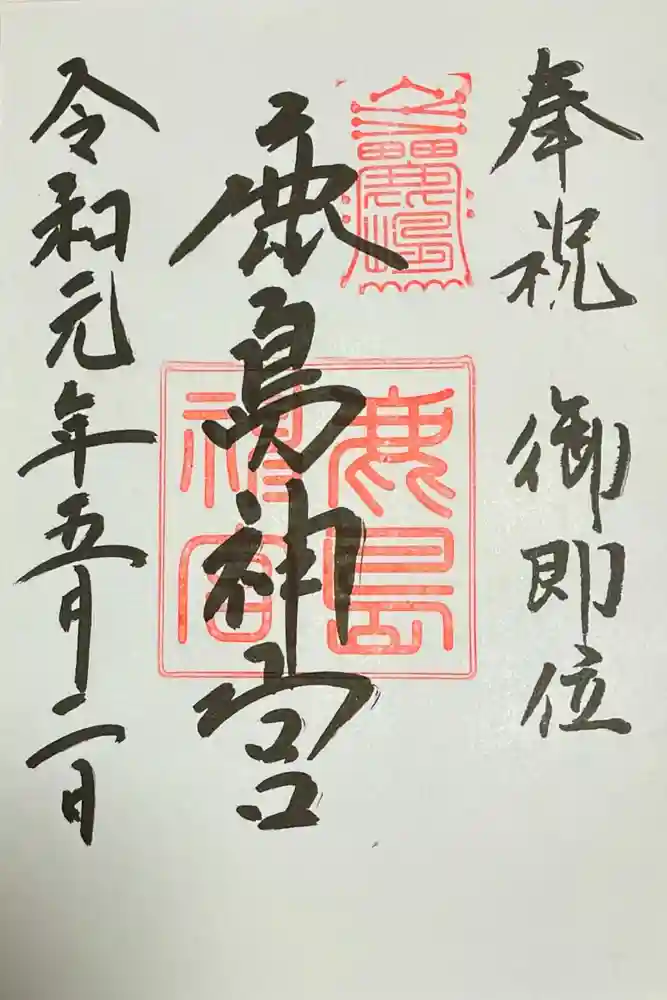 奉祝 御即位
鹿島神宮
鹿島神宮
令和元年五月二日